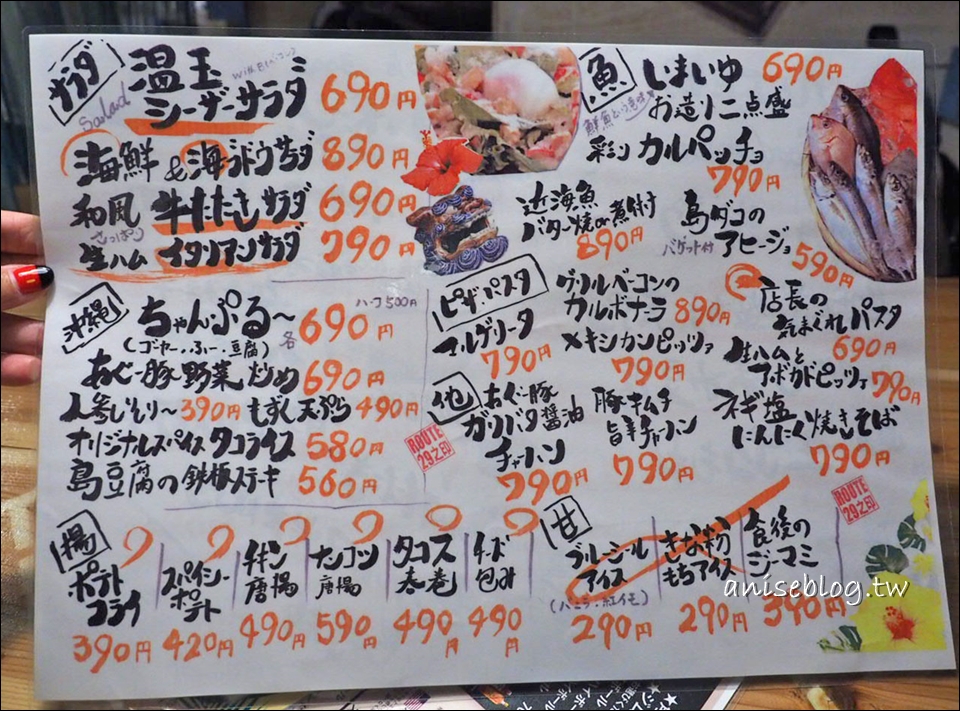 サラダ
Salad
温玉
シーザーサラダ 690円
海鮮&海ブドウサラダ 890円
和風 牛たたきサラダ 690円
さっぱり
生ハム イタリアンサラダ 790円
魚
しまいゆ 690円
お造り二点盛
彩り カルパッチョ
790円
近海魚
バター焼き or 煮付
890円
島ダコの
バゲット付 アヒージョ 590円
沖縄
ちゃんぷるー
各 690円
ハーフ 500円
(ゴーヤー.ふー.豆腐)
あぐー豚野菜炒め 690円
人参しりしりー 390円 もずく天ぷら 490円
オリジナルスパイスタコライス 580円
島豆腐の鉄板ステーキ 560円
ピザ・パスタ
マルゲリータ
790円
グリルベーコンの
カルボナーラ 890円
メキシカンピッツァ
790円
店長の
気まぐれパスタ
690円
生ハムと
アボカドピッツァ 790円
他
あぐー豚
ガリバタ醤油
チャーハン
790円
豚キムチ
旨辛チャーハン
790円
ネギ塩
にんにく焼きそば
790円
ROUTE
29之印
ROUTE
29之印
揚
ポテト
フライ
390円
スパイシー
ポテト
420円
チキン
唐揚
490円
ナンコツ
唐揚
590円
タコス
春巻
490円
チーズ
包み
490円
甘
ブルーシール
アイス
(バニラ.紅イモ)
290円
きなこ
もちアイス
290円
食後の
ジーマミ
390円
aniseblog.tw